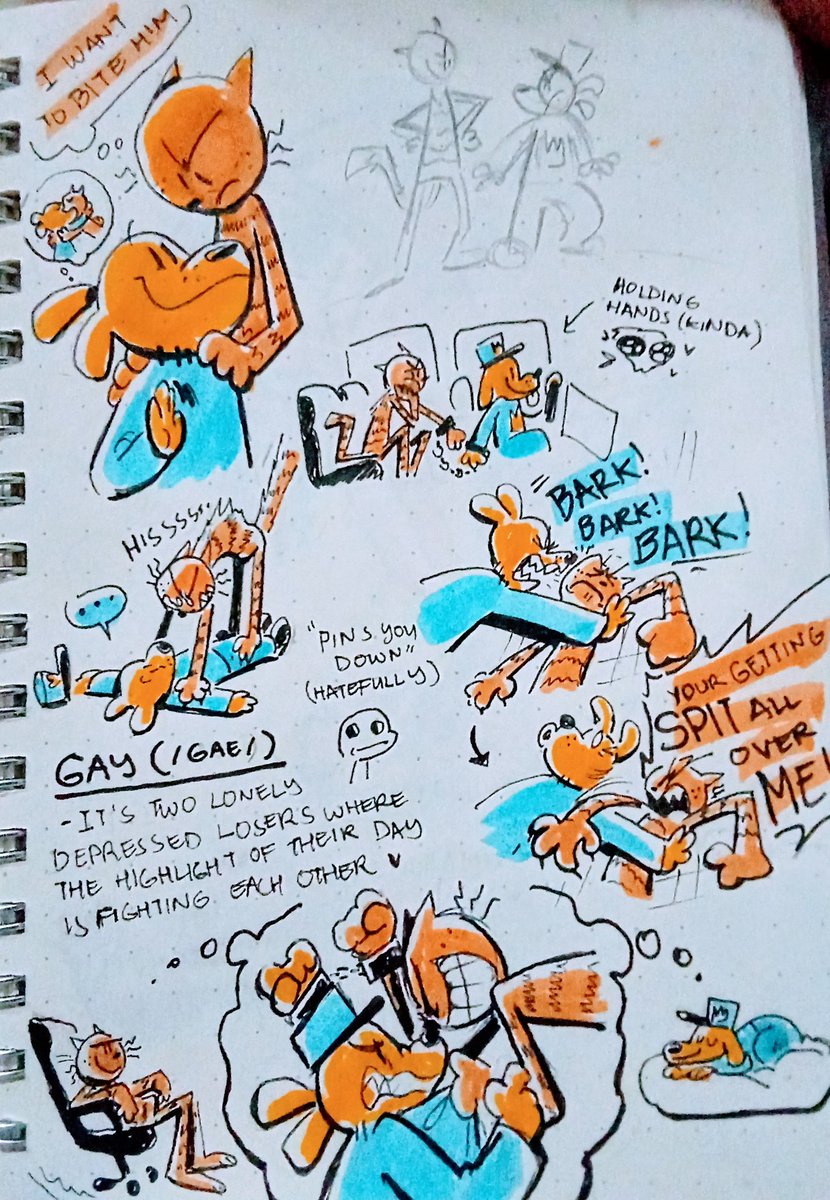 I WANT
TO BITE HIM
HOLDING
HANDS (KINDA)
BARK!
BARK!
BARK!
HISSSSS...
...
"PINS YOU
DOWN"
(HATEFULLY)
YOUR GETTING
SPIT ALL
OVER
ME!
GAY (/GAE/)
- IT'S TWO LONELY
DEPRESSED LOSERS WHERE
THE HIGHLIGHT OF THEIR DAY
IS FIGHTING EACH OTHER ♥